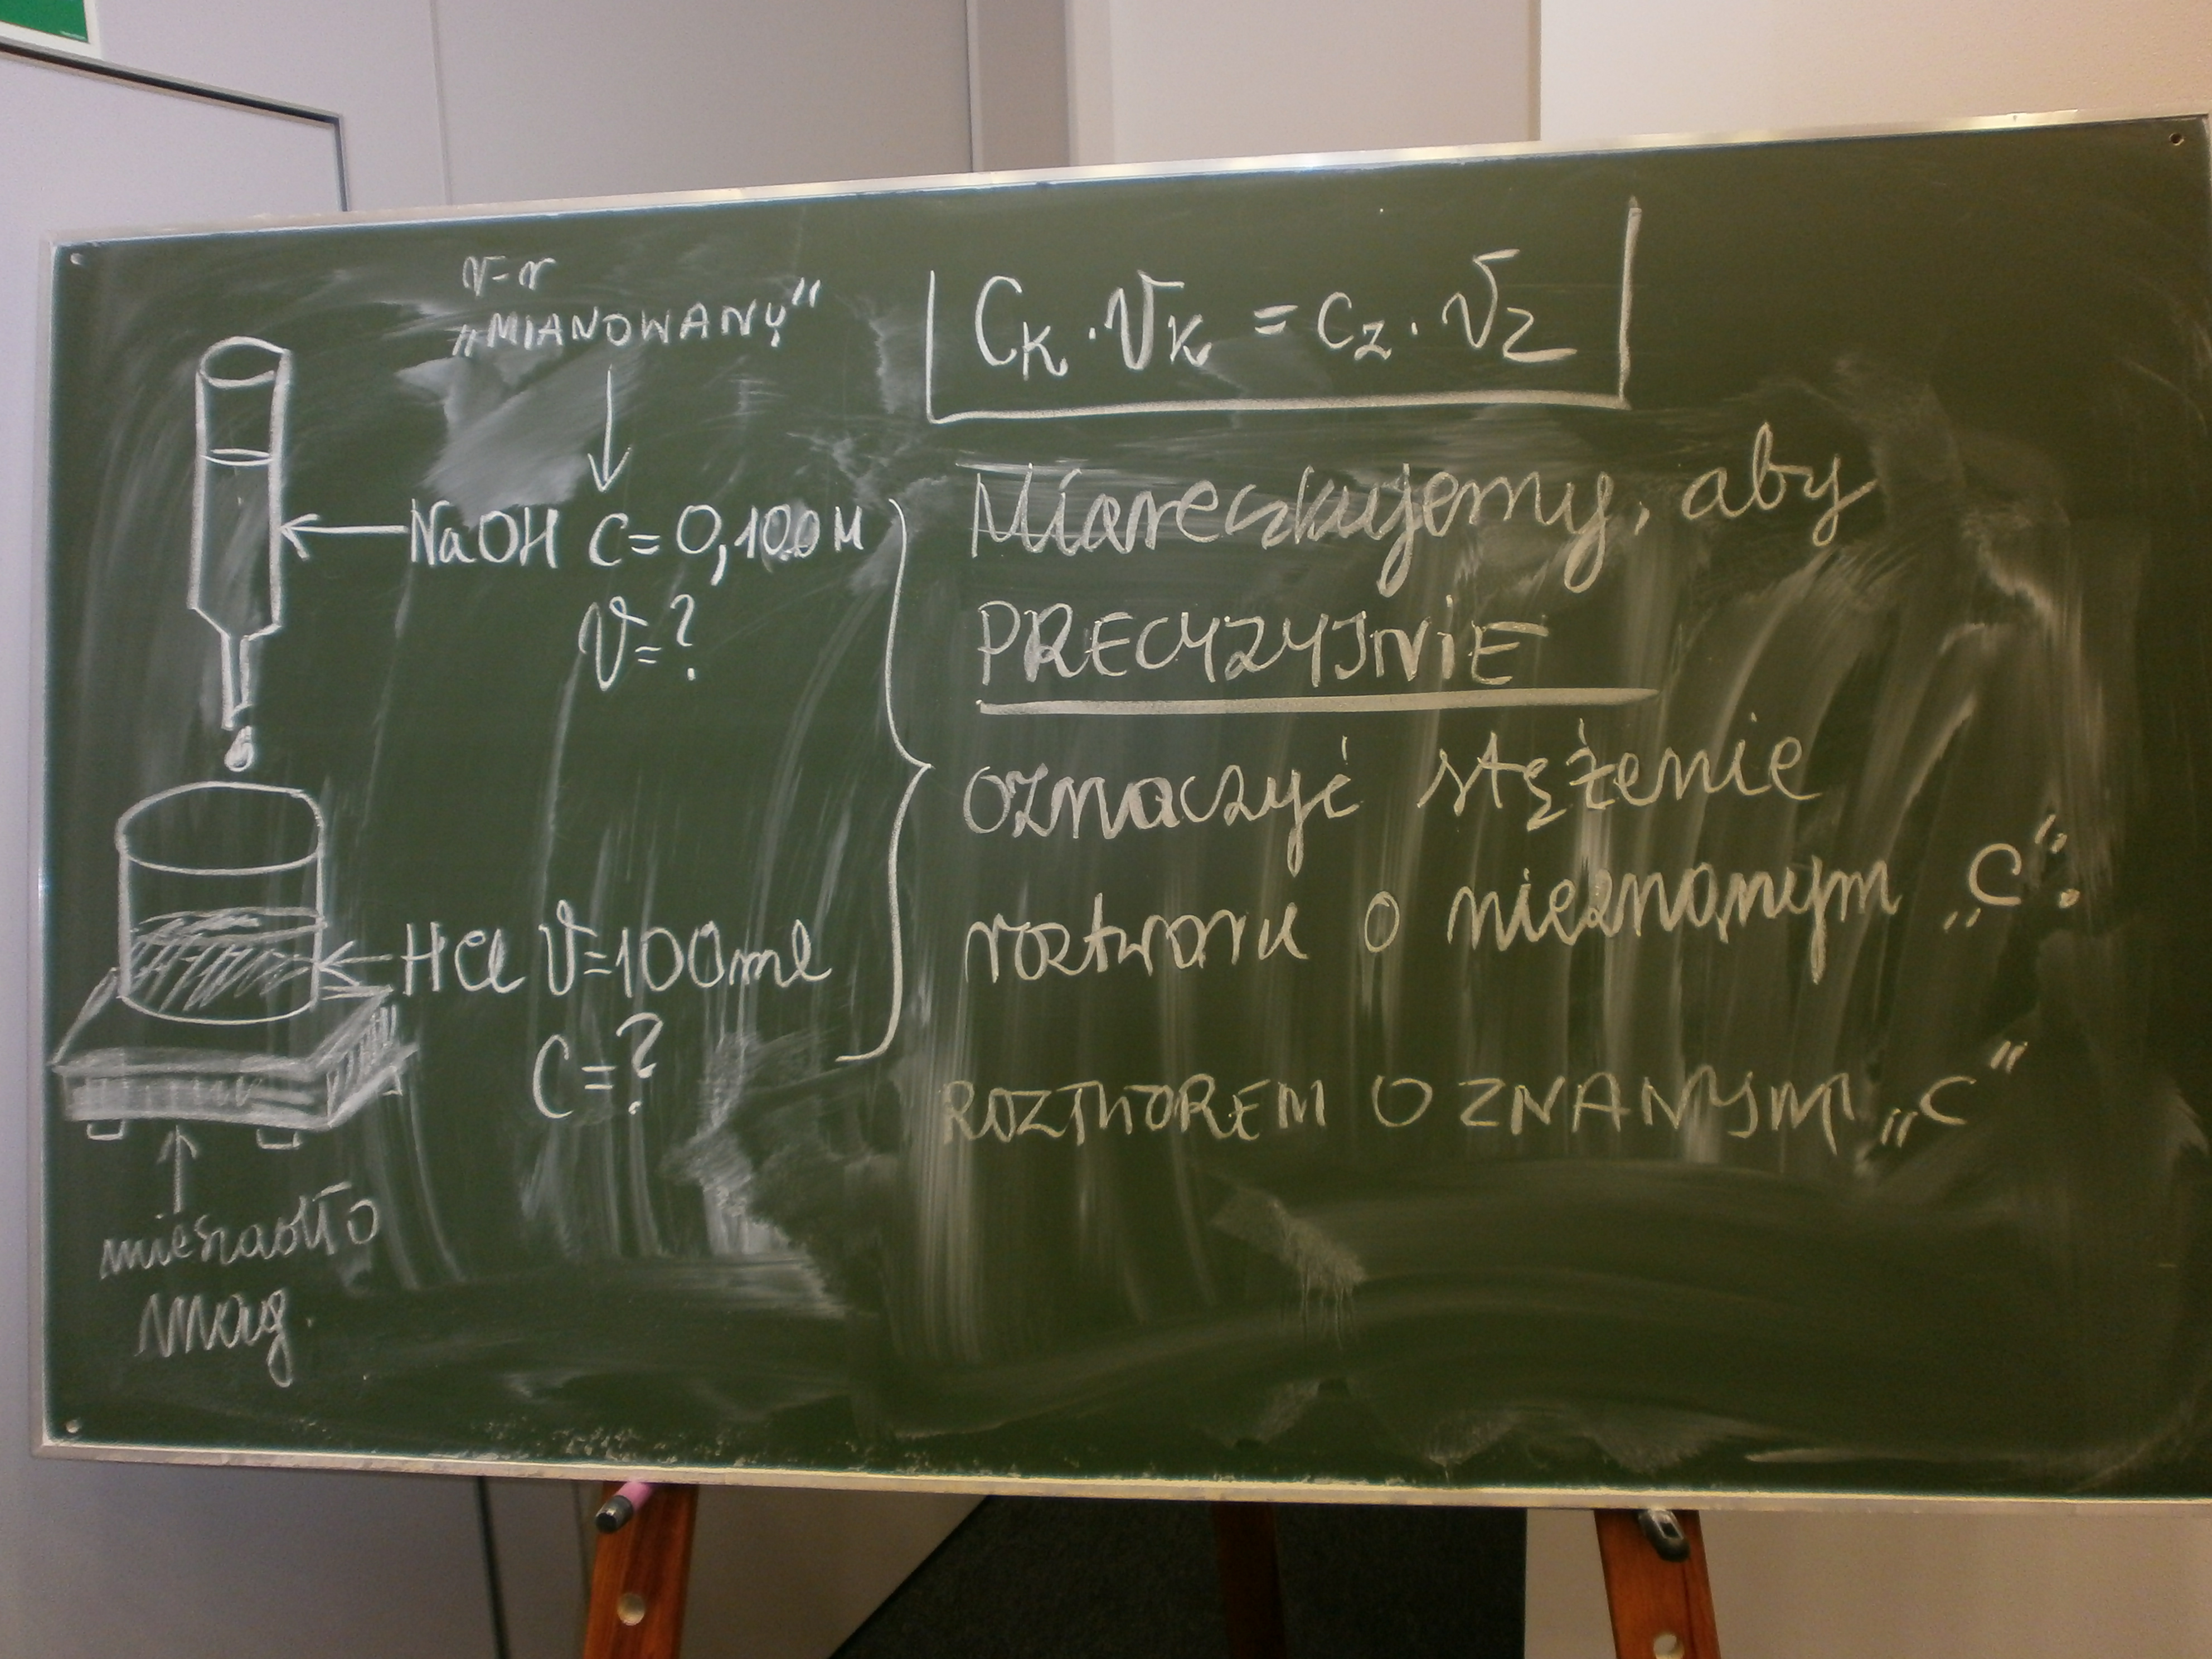 r-r
„MIANOWANY“
NaOH C=0,100M
V=?
HCl V=100ml
C=?
mieszadło
mag.
CK · VK = Cz · Vz
Miareczkujemy, aby
PRECYZYJNIE
oznaczyć stężenie
roztworu o nieznanym „C“.
ROZTWOREM O ZNANYM „C“